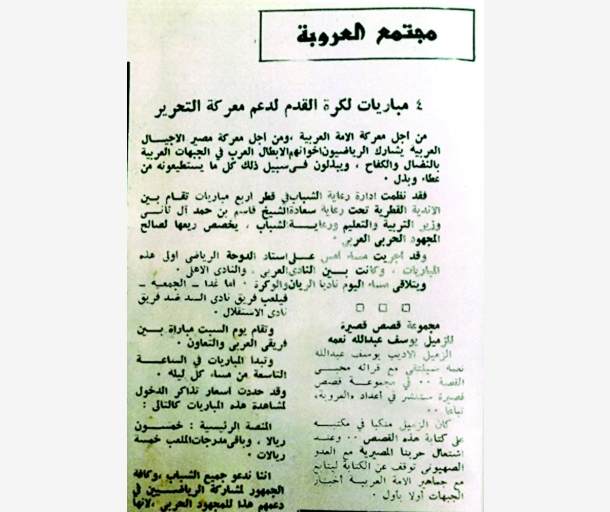 مجتمع العروبة
٤ مباريات لكرة القدم لدعم معركة التحرير
من أجل معركة الامة العربية ،ومن أجل معركة مصير الاجيال
العربية يشارك الرياضيون اخوانهم الابطال العرب في الجبهات العربية
بالنضال والكفاح ، ويبذلون في سبيل ذلك كل ما يستطيعونه من
عطاء وبذل ٠
فقد نظمت ادارة رعاية الشباب في قطر اربع مباريات تقام بين
الاندية القطرية تحت رعاية سعادة الشيخ قاسم بن حمد آل ثاني
وزير التربية والتعليم ورعاية الشباب ، يخصص ريعها لصالح
المجهود الحربي العربي ٠
وقد اجريت مساء أمس على استاد الدوحة الرياضي اولى هذه
المباريات ، وكانت بين النادي العربي ، والنادي الاهلي ٠
ويتلاقى مساء اليوم ناديا الريان والوكرة ٠ اما غدا ــ الجمعيه ــ
فيلعب فريق نادى السد ضد فريق
نادى الاستقلال ٠
وتقام يوم السبت مباراة بين
فريقى العربي والتعاون ٠
وتبدا المباريات في الساعة
التاسعة من مساء كل ليله ٠
وقد حددت اسعار تذاكر الدخول
لمشاهدة هذه المباريات كالتالي :
المنصة الرئيسية : خمسون
ريالا ، وباقي مدرجات الملعب خمسة
ريالات ٠
اننا ندعو جميع الشباب ،وكافة
الجمهور لمشاركة الرياضيين في
دعمهم هذا للمجهود الحربي ،لانها
مجموعة قصص قصيرة
للزميل يوسف عبدالله نعمه
الزميل الاديب يوسف عبدالله
نعمه سيلتقي مع قرائه محبي
القصة ٠٠ في مجموعة قصص
قصيرة ستنشر في أعداد «العروبة»
تباعا ٠٠
كان الزميل منكبا في مكتبه
على كتابة هذه القصص ٠٠ وعند
اشتعال حربنا المصيرية مع العدو
الصهيوني توقف عن الكتابة ليتابع
مع جماهير الامة العربية أخبار
الجبهات أولا بأول ٠